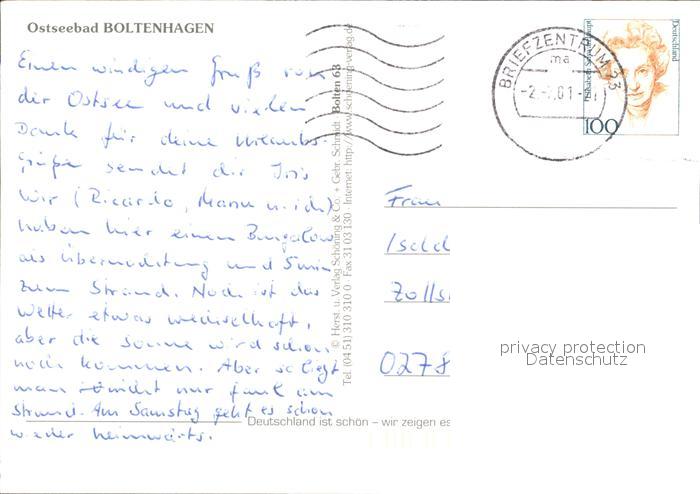 Ostseebad BOLTENHAGEN
Einen windigen Gruß von
der Ostsee und vielen
Dank für deine Urlaubs-
grüße sendet dir Iris
Wir (Ricardo, Mann u. ich)
haben hier einen Bungalow
als Übernachtung und 5 min
zum Strand. Noch ist das
Wetter etwas wechselhaft,
aber die Sonne wird schon
noch kommen. Aber so liegt
man nicht nur faul am
Strand. Am Samstag geht es schon
wieder heimwärts.
© Herst. u. Verlag Schöning & Co. + Gebr. Schmidt · Bolten 63
Tel. (04 51) 310 310 0 · Fax 31 03 130 · Internet: http://www.schoening-verlag.de
BRIEFZENTRUM 23
ma
Deutschland
100
Frau
Isold
Zolls
0278
privacy protection
Datenschutz
Deutschland ist schön – wir zeigen es